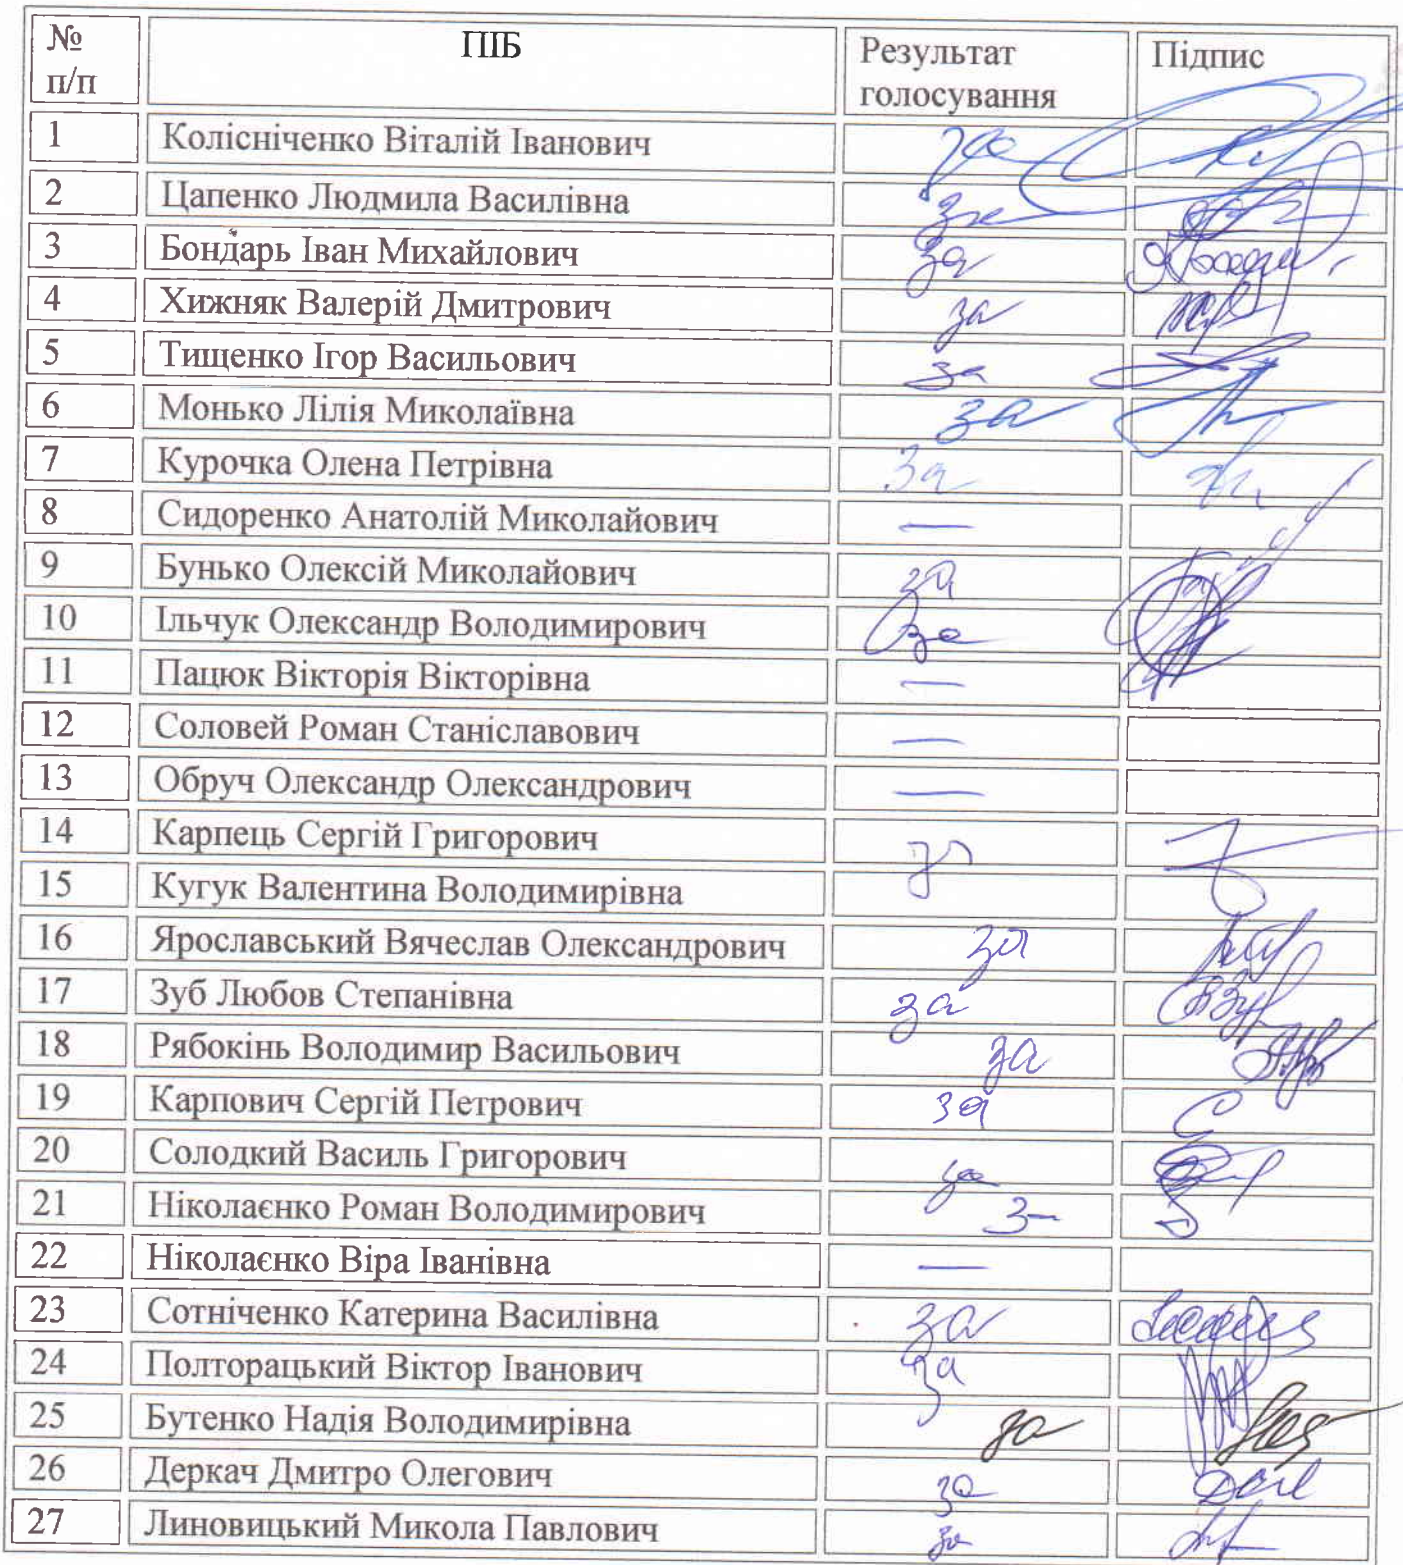 № п/п ПІБ Результат голосування Підпис
1 Колісніченко Віталій Іванович за
2 Цапенко Людмила Василівна за
3 Бондарь Іван Михайлович за
4 Хижняк Валерій Дмитрович за
5 Тищенко Ігор Васильович за
6 Монько Лілія Миколаївна за
7 Курочка Олена Петрівна За
8 Сидоренко Анатолій Миколайович —
9 Бунько Олексій Миколайович за
10 Ільчук Олександр Володимирович за
11 Пацюк Вікторія Вікторівна —
12 Соловей Роман Станіславович —
13 Обруч Олександр Олександрович —
14 Карпець Сергій Григорович за
15 Кугук Валентина Володимирівна
16 Ярославський Вячеслав Олександрович за
17 Зуб Любов Степанівна за
18 Рябокінь Володимир Васильович за
19 Карпович Сергій Петрович за
20 Солодкий Василь Григорович за
21 Ніколаєнко Роман Володимирович
22 Ніколаєнко Віра Іванівна —
23 Сотніченко Катерина Василівна за
24 Полторацький Віктор Іванович за
25 Бутенко Надія Володимирівна за
26 Деркач Дмитро Олегович за
27 Линовицький Микола Павлович за